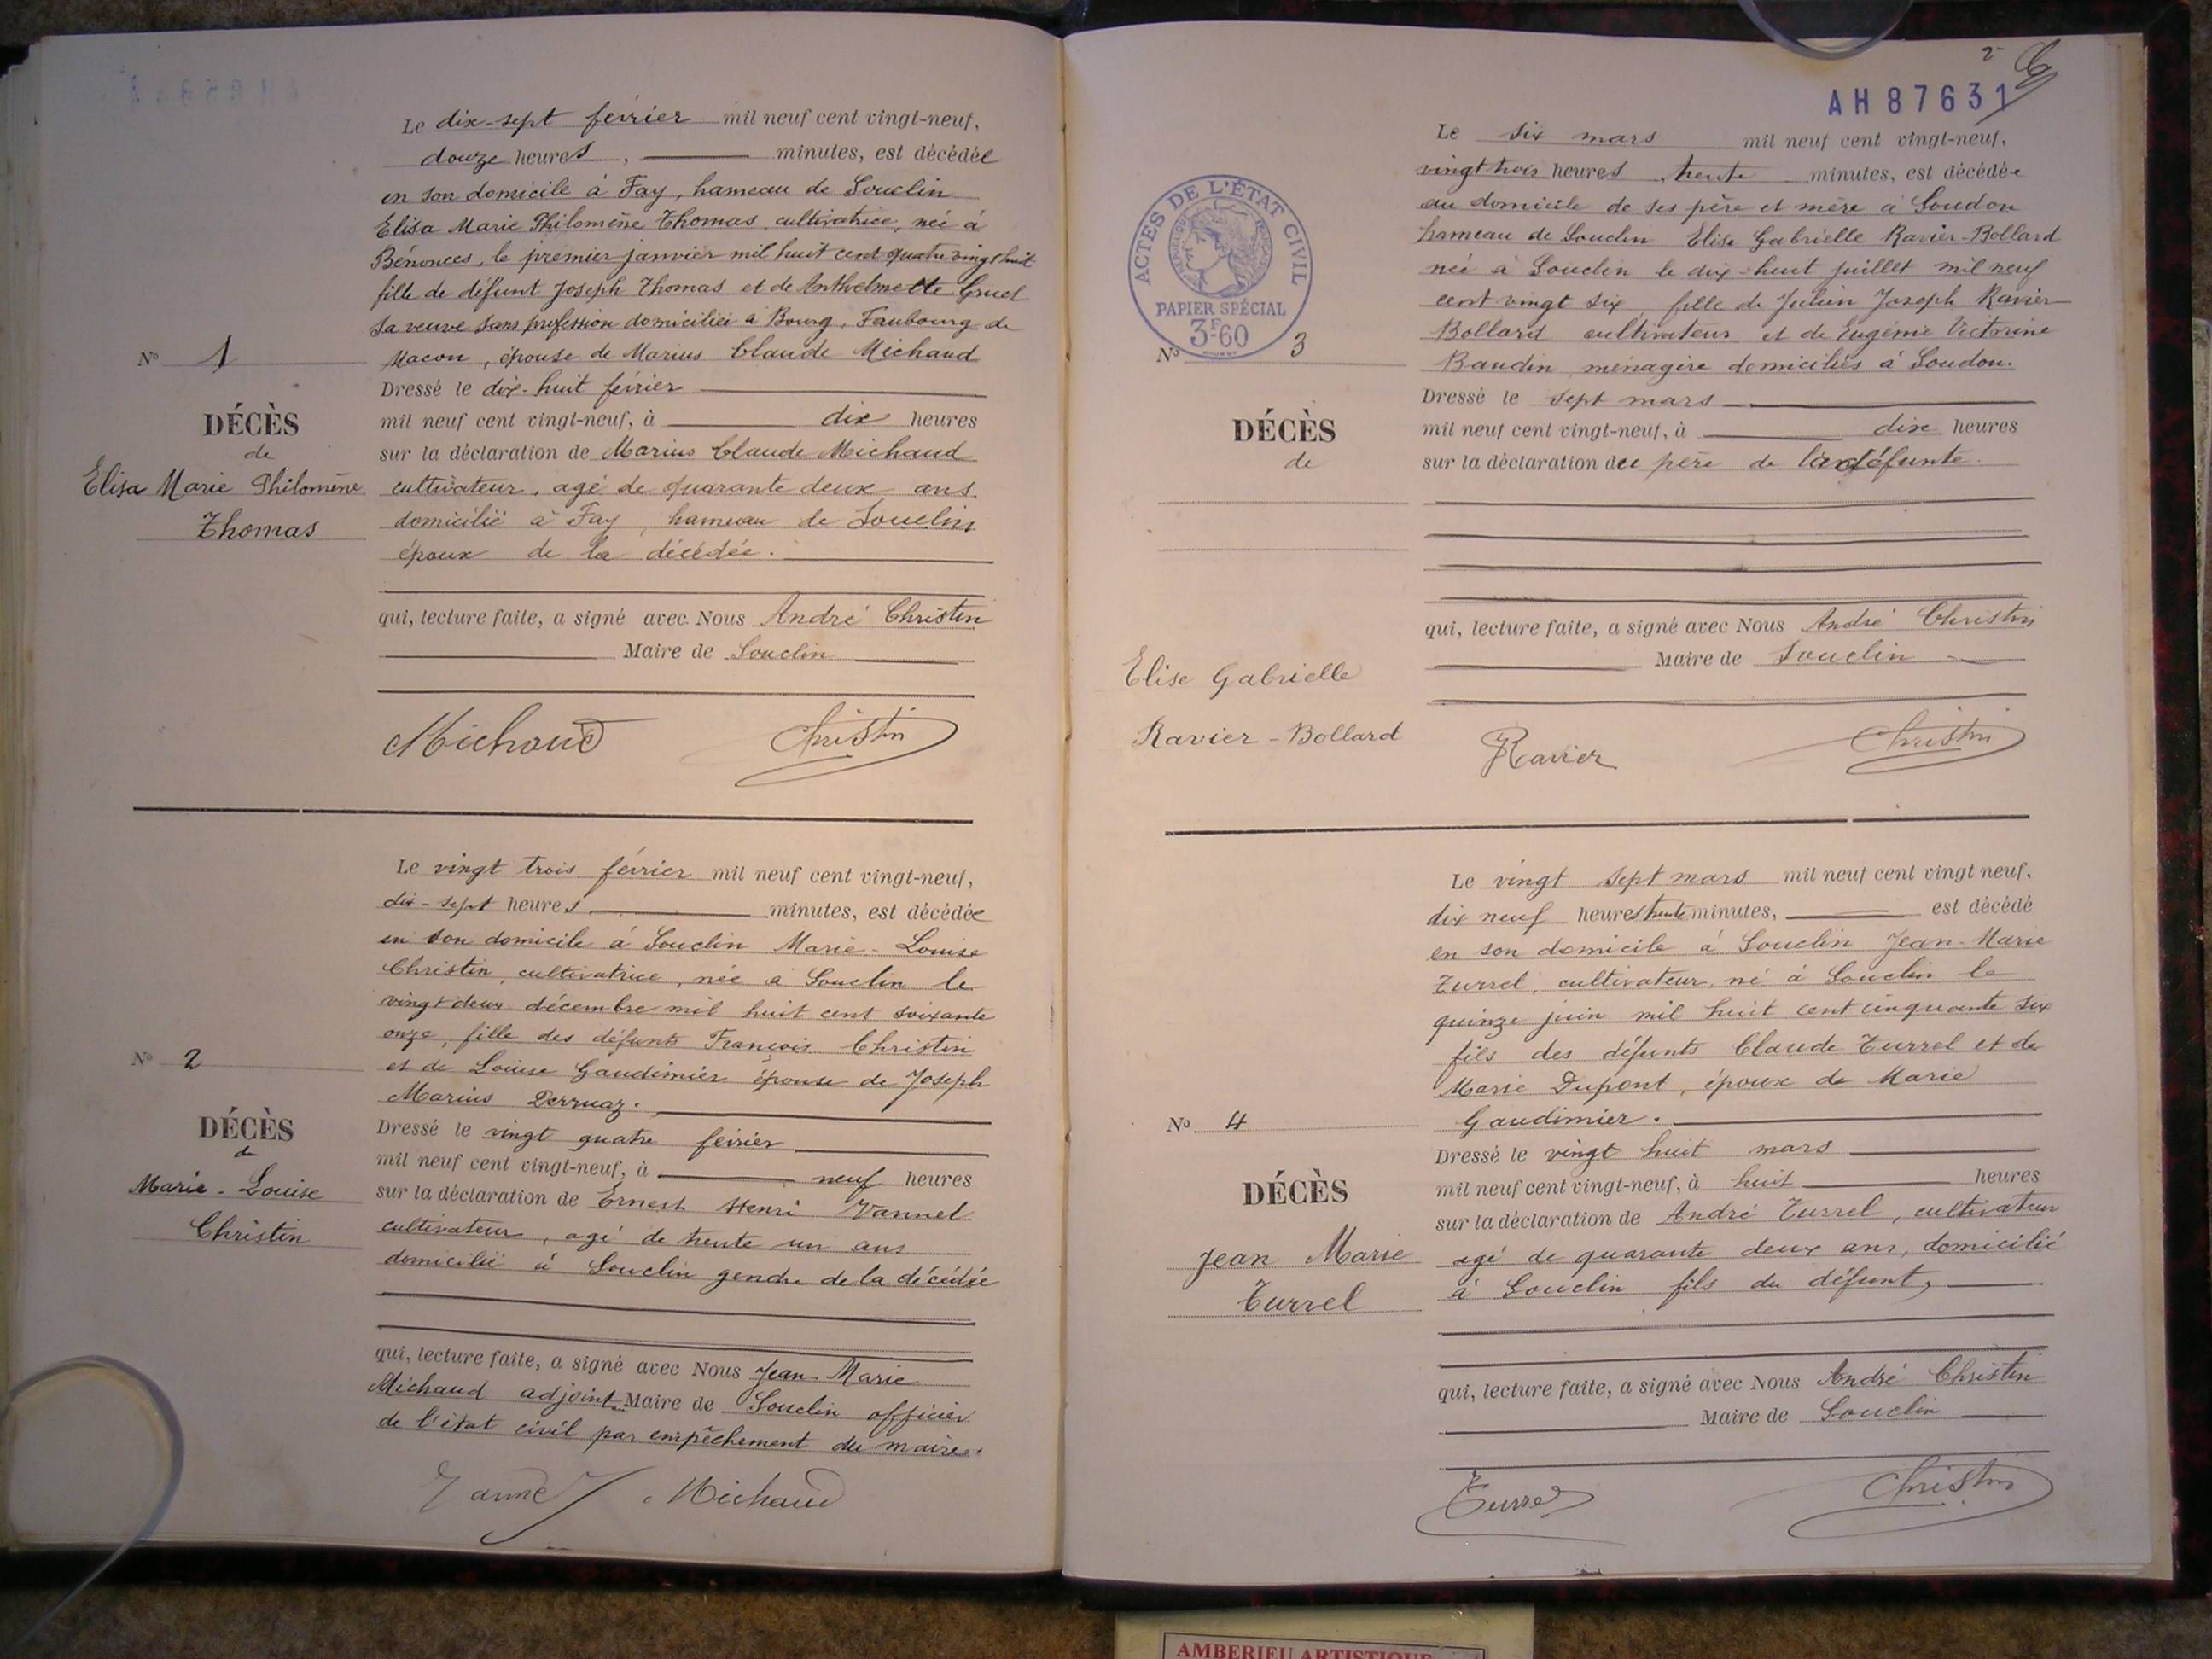 Le dix-sept février mil neuf cent vingt-neuf,
douze heures, minutes, est décédée
en son domicile à Fay, hameau de Souclin
Elisa Marie Philomène Thomas, cultivatrice, née à
Bénonces, le premier janvier mil huit cent quatre vingt huit
fille de défunt Joseph Thomas et de Anthelmette Gruel
sa veuve sans profession domiciliée à Bourg, Faubourg de
Macon, épouse de Marius Claude Michaud
N° 1
DÉCÈS
de
Elisa Marie Philomène
Thomas
Dressé le dix-huit février
mil neuf cent vingt-neuf, à dix heures
sur la déclaration de Marius Claude Michaud
cultivateur, agé de quarante deux ans.
domicilié à Fay, hameau de Souclin
époux de la décédée.
qui, lecture faite, a signé avec Nous André Christin
Maire de Souclin
Michaud Christin
Le vingt trois février mil neuf cent vingt-neuf,
dix-sept heures minutes, est décédée
en son domicile à Souclin Marie-Louise
Christin, cultivatrice, née à Souclin le
vingt deux décembre mil huit cent soixante
onze, fille des défunts François Christin
et de Louise Gaudimier épouse de Joseph
Marius Derruaz.
N° 2
DÉCÈS
de
Marie-Louise
Christin
Dressé le vingt quatre février
mil neuf cent vingt-neuf, à neuf heures
sur la déclaration de Ernest Henri Vannel
cultivateur, agé de trente un ans
domicilié à Souclin gendre de la décédée
qui, lecture faite, a signé avec Nous Jean-Marie
Michaud adjoint Maire de Souclin officier
de l'état civil par empêchement du maire.
Michaud
2
AH 87631
ACTES DE L'ÉTAT CIVIL
PAPIER SPÉCIAL
3F60
Le six mars mil neuf cent vingt-neuf,
vingt trois heures, trente minutes, est décédée
au domicile de ses père et mère à Soudon
hameau de Souclin Elise Gabrielle Ravier-Bollard
née à Souclin le dix-huit juillet mil neuf
cent vingt six, fille de Julien Joseph Ravier-
Bollard cultivateur et de Eugénie Victorine
Baudin ménagère domiciliés à Soudon.
N° 3
DÉCÈS
de
Elise Gabrielle
Ravier-Bollard
Dressé le sept mars
mil neuf cent vingt-neuf, à dix heures
sur la déclaration du père de la défunte.
qui, lecture faite, a signé avec Nous André Christin
Maire de Souclin
Ravier Christin
Le vingt sept mars mil neuf cent vingt neuf,
dix neuf heures trente minutes, est décédé
en son domicile à Souclin Jean-Marie
Turrel, cultivateur, né à Souclin le
quinze juin mil huit cent cinquante six
fils des défunts Claude Turrel et de
Marie Dupont, époux de Marie
Gaudimier.
N° 4
DÉCÈS
Jean Marie
Turrel
Dressé le vingt huit mars
mil neuf cent vingt-neuf, à huit heures
sur la déclaration de André Turrel, cultivateur
agé de quarante deux ans, domicilié
à Souclin fils du défunt,
qui, lecture faite, a signé avec Nous André Christin
Maire de Souclin
Turrel Christin
AMBERIEU ARTISTIQUE